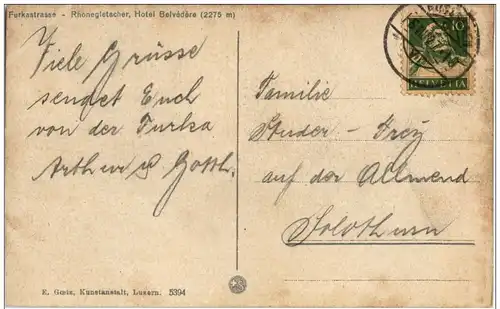 Furkastrasse - Rhonegletscher, Hotel Belvédère (2275 m)
Viele Grüsse
sendet Euch
von der Furka
Arthur & Gotth.
10
HELVETIA
Familie
Studer - Frey
auf der Allmend
Solothurn
E. Goetz, Kunstanstalt, Luzern. 5394